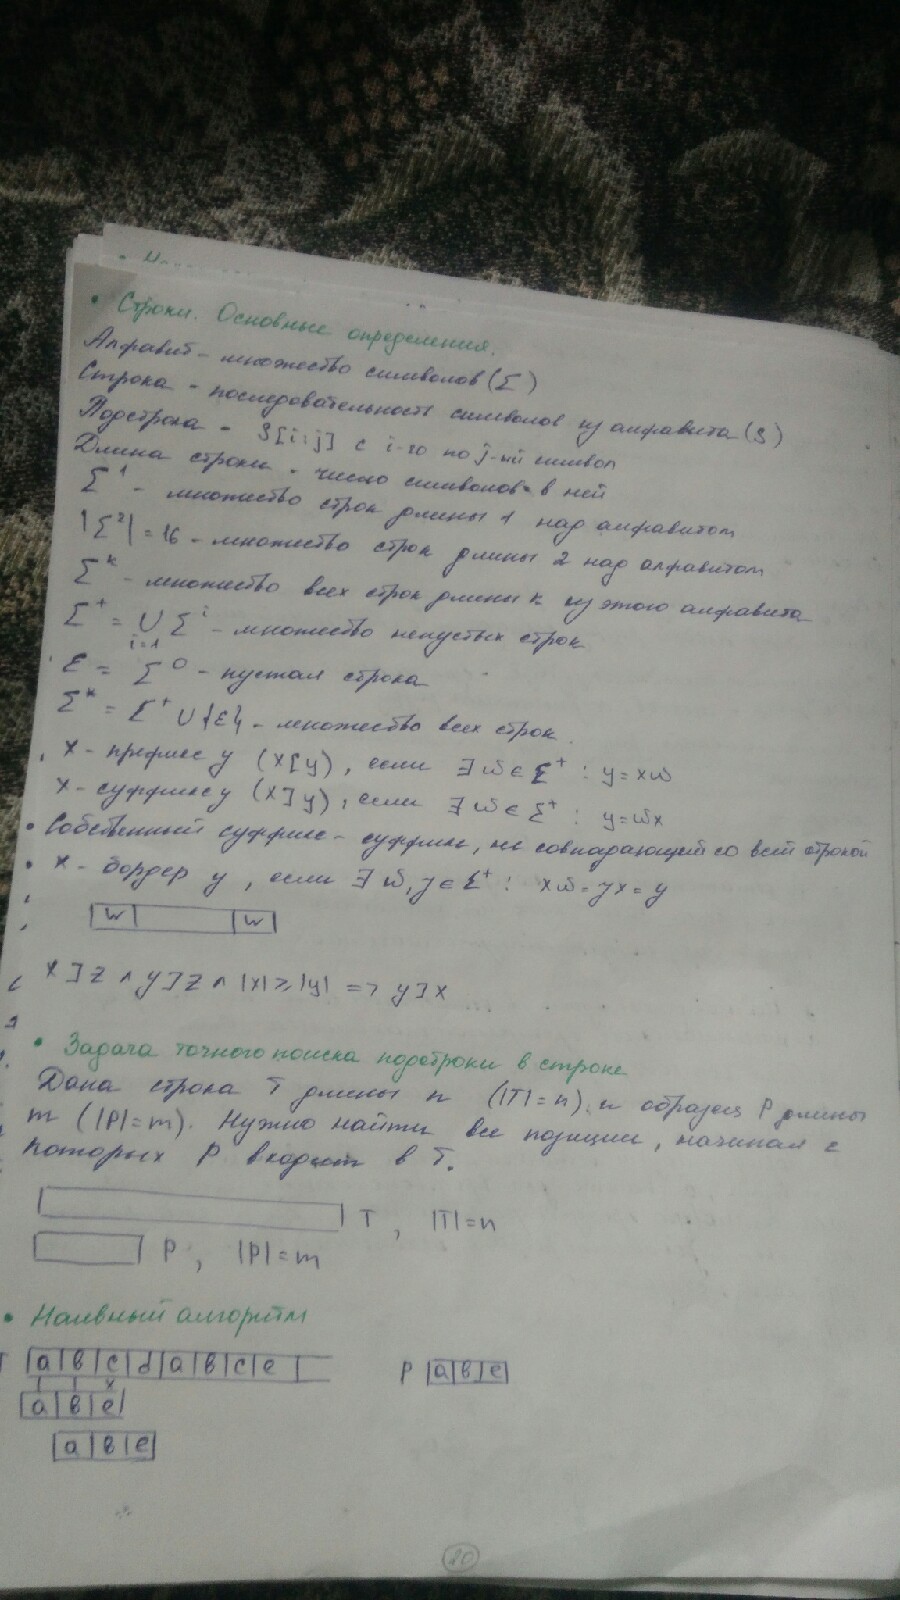 • Строки. Основные определения.
Алфавит - множество символов (Σ)
Строка - последовательность символов из алфавита (S)
Подстрока - S[i:j] с i-го по j-ый символ
Длина строки - число символов в ней
Σ¹ - множество строк длины 1 над алфавитом
|Σ²| = 16 - множество строк длины 2 над алфавитом
Σᵏ - множество всех строк длины k из этого алфавита
Σ⁺ = ∪ Σⁱ - множество непустых строк
i=1
ε = Σ⁰ - пустая строка
Σ* = Σ⁺ ∪ {ε} - множество всех строк
x - префикс y (x[y), если ∃ w ∈ Σ⁺ : y = xw
x - суффикс y (x]y), если ∃ w ∈ Σ⁺ : y = wx
• Собственный суффикс - суффикс, не совпадающий со всей строкой
• x - бордер y, если ∃ w, z ∈ Σ⁺ : xw = zx = y
w w
x]z ∧ y]z ∧ |x| ≥ |y| => y]x
• Задача точного поиска подстроки в строке
Дана строка T длины n (|T|=n), и образец P длины
m (|P|=m). Нужно найти все позиции, начиная с
которых P входит в T.
T, |T|=n
P, |P|=m
• Наивный алгоритм
T a в c d a в c e P a в e
a в e
a в e
20